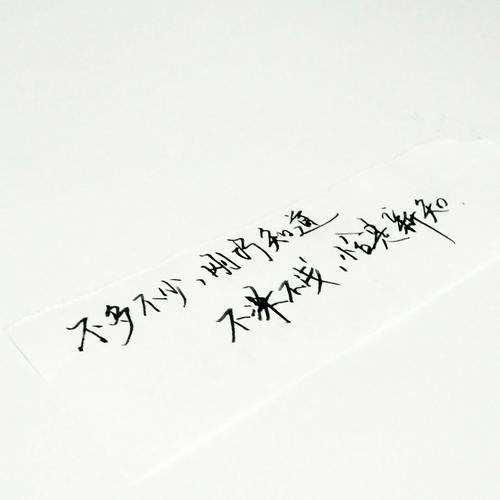 不多不少、刚好知道
不深不浅、恰是新知